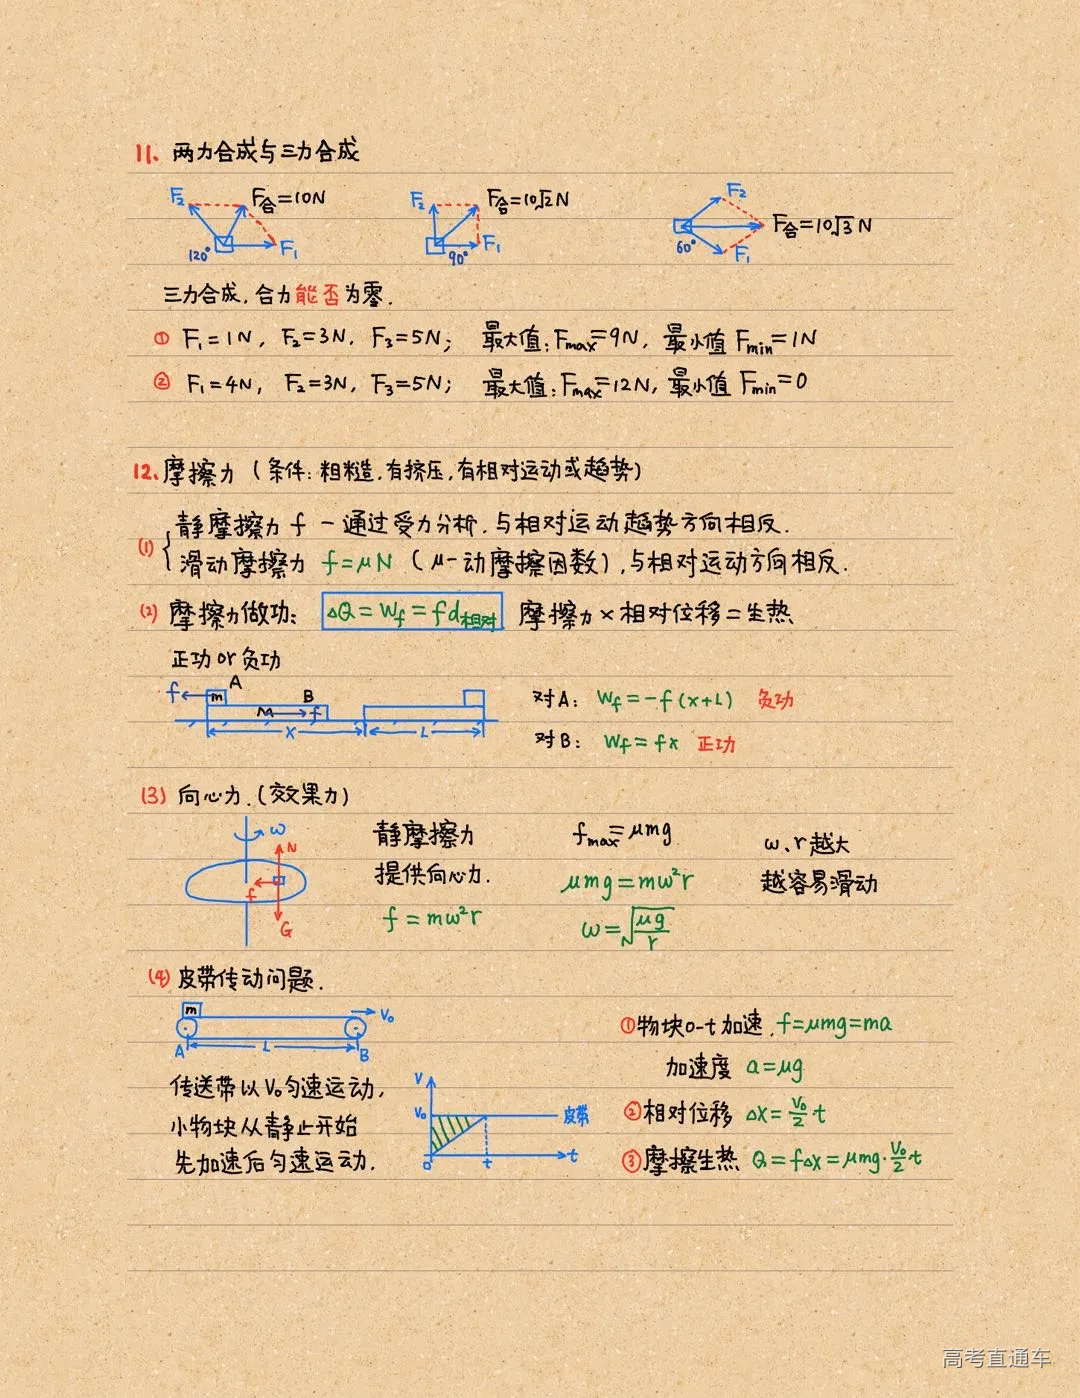 11. 两力合成与三力合成
F₂ F合=10N 120° F₁
F₂ F合=10√2N 90° F₁
F₂ F合=10√3N 60° F₁
三力合成,合力能否为零.
① F₁=1N, F₂=3N, F₃=5N; 最大值:Fmax=9N, 最小值 Fmin=1N
② F₁=4N, F₂=3N, F₃=5N; 最大值:Fmax=12N, 最小值 Fmin=0
12. 摩擦力 (条件:粗糙,有挤压,有相对运动或趋势)
(1) 静摩擦力 f — 通过受力分析,与相对运动趋势方向相反.
滑动摩擦力 f=μN (μ-动摩擦因数),与相对运动方向相反.
(2) 摩擦力做功: ΔQ=Wf=fd相对 摩擦力×相对位移=生热
正功or负功
f m A B M f x L
对A: Wf=-f(x+L) 负功
对B: Wf=fx 正功
(3) 向心力.(效果力)
ω N f G
静摩擦力
提供向心力.
f=mω²r
fmax=μmg
μmg=mω²r
ω=√(μg/r)
ω、r越大
越容易滑动
(4) 皮带传动问题.
m V₀ A L B
传送带以V₀匀速运动,
小物块从静止开始
先加速后匀速运动.
V V₀ 皮带 0 t t
①物块0-t加速,f=μmg=ma
加速度 a=μg
②相对位移 Δx=V₀/2·t
③摩擦生热 Q=fΔx=μmg·V₀/2·t
高考直通车